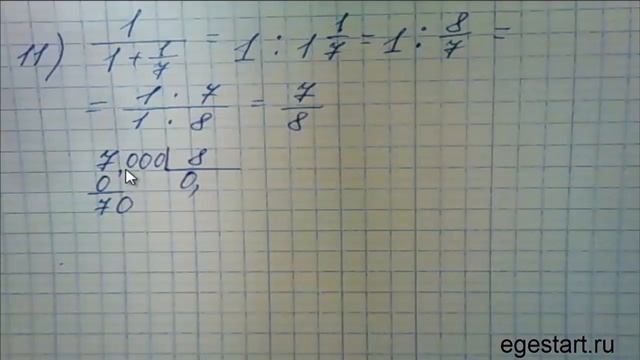 11) 1/(1 + 1/7) = 1 : 1 1/7 = 1 : 8/7 =
= (1 · 7)/(1 · 8) = 7/8
7,000 | 8
0 0,
70
egestart.ru